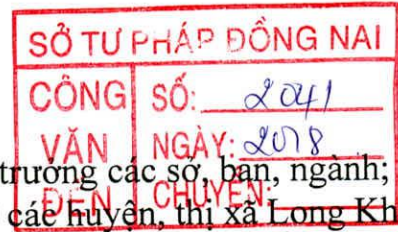 SỞ TƯ PHÁP ĐỒNG NAI
CÔNG VĂN ĐẾN
SỐ: 2041
NGÀY: 20/8
CHUYỂN:
trưởng các sở, ban, ngành;
các huyện, thị xã Long Kh